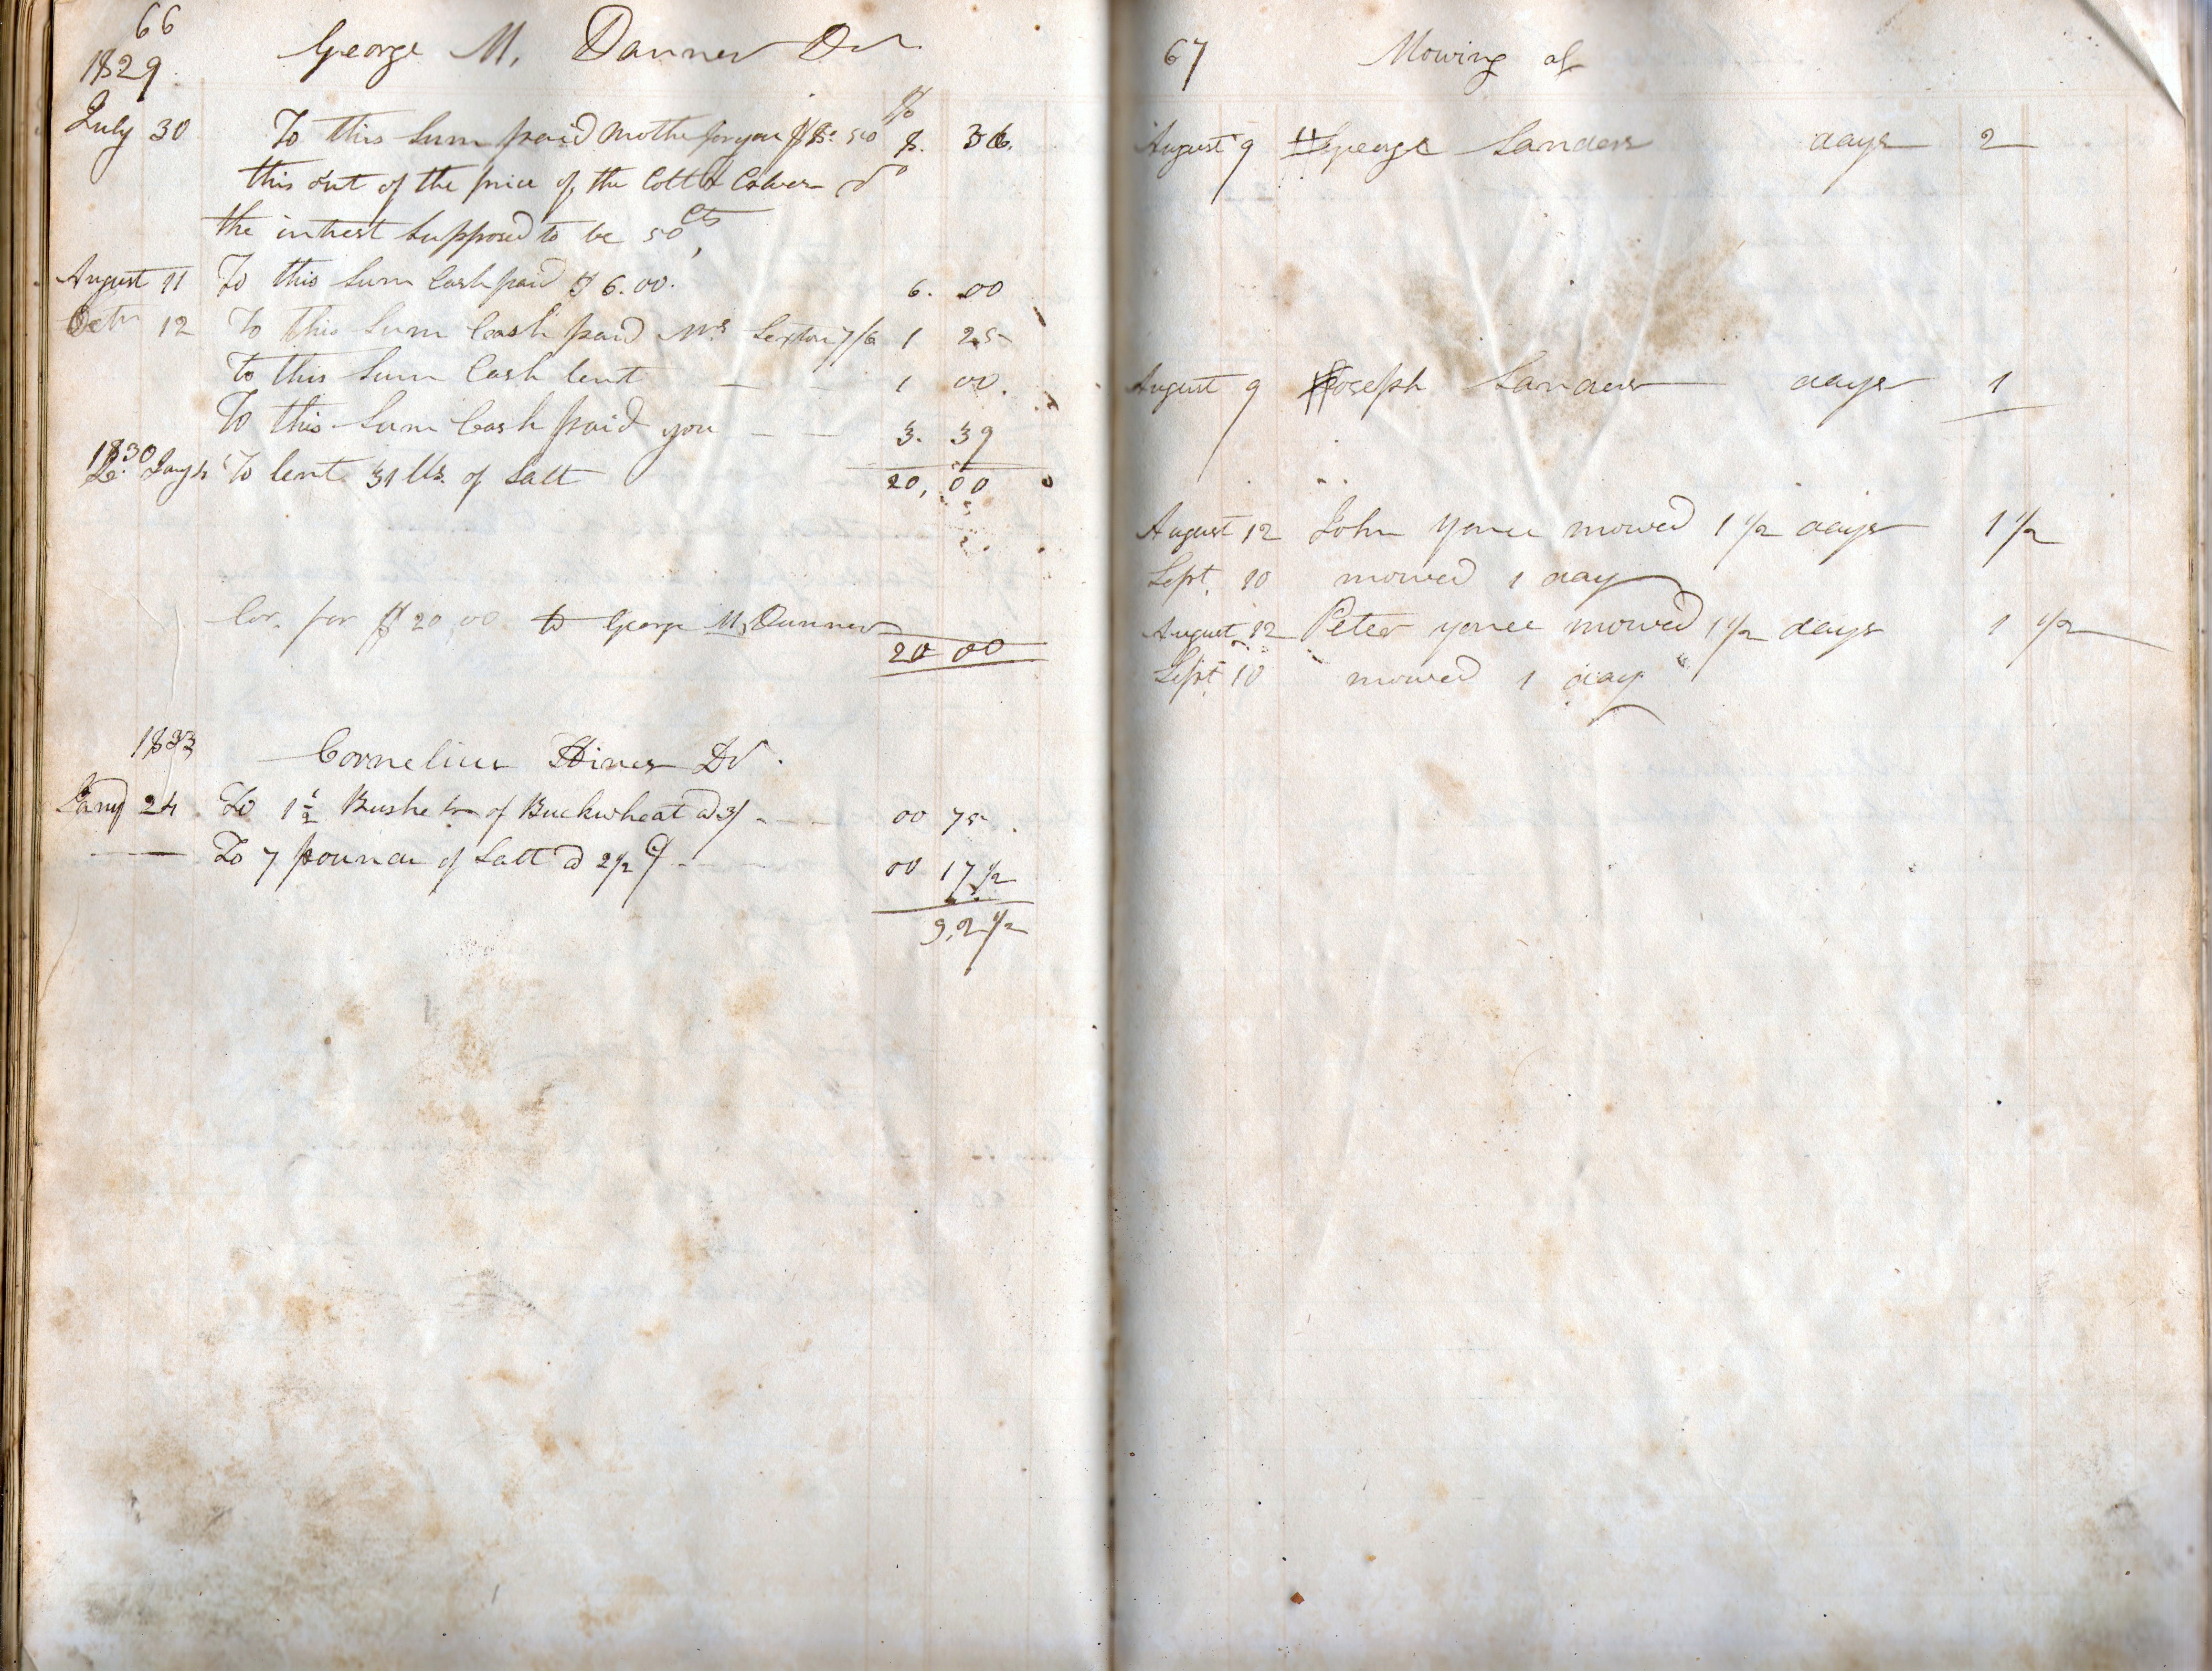 66
1829
George M. Danner Dr
July 30 To this Sum paid Mother for you $8. 50 8. 36.
this out of the price of the Colt & Calves
the intrest Supposed to be 50 Cts
August 11 To this Sum Cash paid $6.00. 6. 00
Octr 12 To this Sum Cash paid Mrs Sexton 7/6 1 25
To this Sum Cash lent — — 1 00.
To this Sum Cash paid you — — 3. 39
1830 To lent 31 lbs. of Salt 20,00
for $20,00 to George M, Danner
20 00
1833
Cornelius Hines Dr.
Jany 24 To 1 1/2 Bushe of Buckwheat @ 3/ - — 00 75.
—— To 7 pounds of Salt @ 2 1/2 - — 00 17 1/2
9,2 1/2
67
Mowing of
August 9 George Sanders days 2
August 9 Joseph Sanders days 1
August 12 John yonce mowed 1 1/2 days 1 1/2
Sept. 10 mowed 1 day
August 12 Peter yonce mowed 1 1/2 days 1 1/2
Sept 10 mowed 1 day